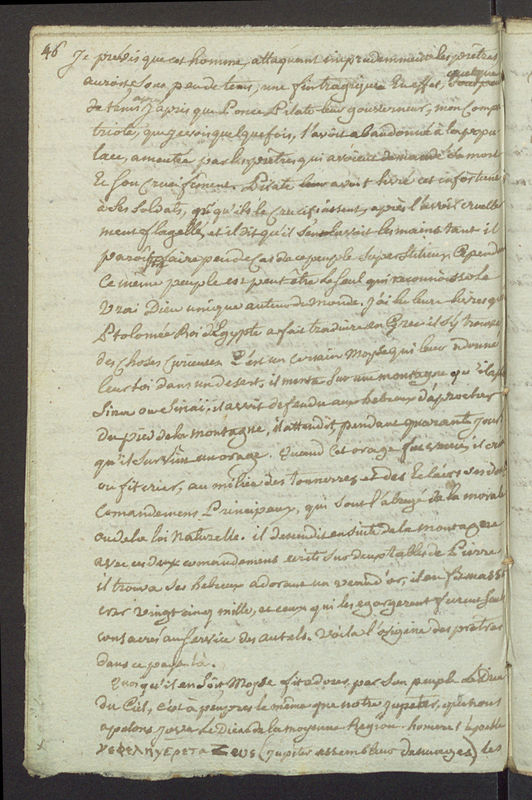 46 Je prévis que cet homme, attaquant imprudemment les prêtres
auroit sous peu de tems, une fin tragique. En effet, quelque
de tems après j'appris que Ponce Pilate leur gouverneur, mon compa
triote, que je vois quelque fois, l'avoit abandonné à la popu
lace, ameutée par les prêtres qui avoient demandé sa mort
et son crucifiement. Pilate avoit livré cet infortuné
à ses soldats, qu'ils le crucifiassent, après l'avoir cruelle
ment flagellé, et il dit qu'il s'en lavoit les mains tant il
paroît faire peu de cas de ce peuple superstitieux. Cependant
ce même peuple est peut être le seul qui reconnoisse le
vrai Dieu unique auteur du monde. J'ai lu leurs livres que
Ptolomée Roi d'Egypte a fait traduire en Grec il s'y trouve
des choses curieuses. C'est un certain Moyse qui leur donna
leur loi dans un desert, il monta sur une montagne qu'il appelle
Sina ou Sinaï. il avoit defendu aux hebreux d'aprocher
du pied de la montagne, il attendit, pendant quarante jours
qu'il survint un orage. Quand cet orage fut venu, il cria
ou fit crier, au milieu des tonnerres et des Eclairs ses dix
comandemens Principaux, qui sont l'abregé de la morale
ou de la loi Naturelle. il descendit ensuite de la montagne
avec ces deux comandemens ecrits sur deux tables de Pierre
il trouva ses hebreux adorant un veau d'or, il en fit massa
crer vingt cinq mille, et ceux qui les egorgerent furent seuls
consacrés au service des autels. Voila l'origine des prêtres
dans ce pays là.
Quoi qu'il en soit Moyse fit adorer, par son peuple le Dieu
du Ciel, c'est a peu près le même que notre Jupiter, que nous
apelons Jova le Dieu de la moyenne Region. homere l'apelle
νεφεληγερετα Ζευς (Jupiter assembleur de nuages) les